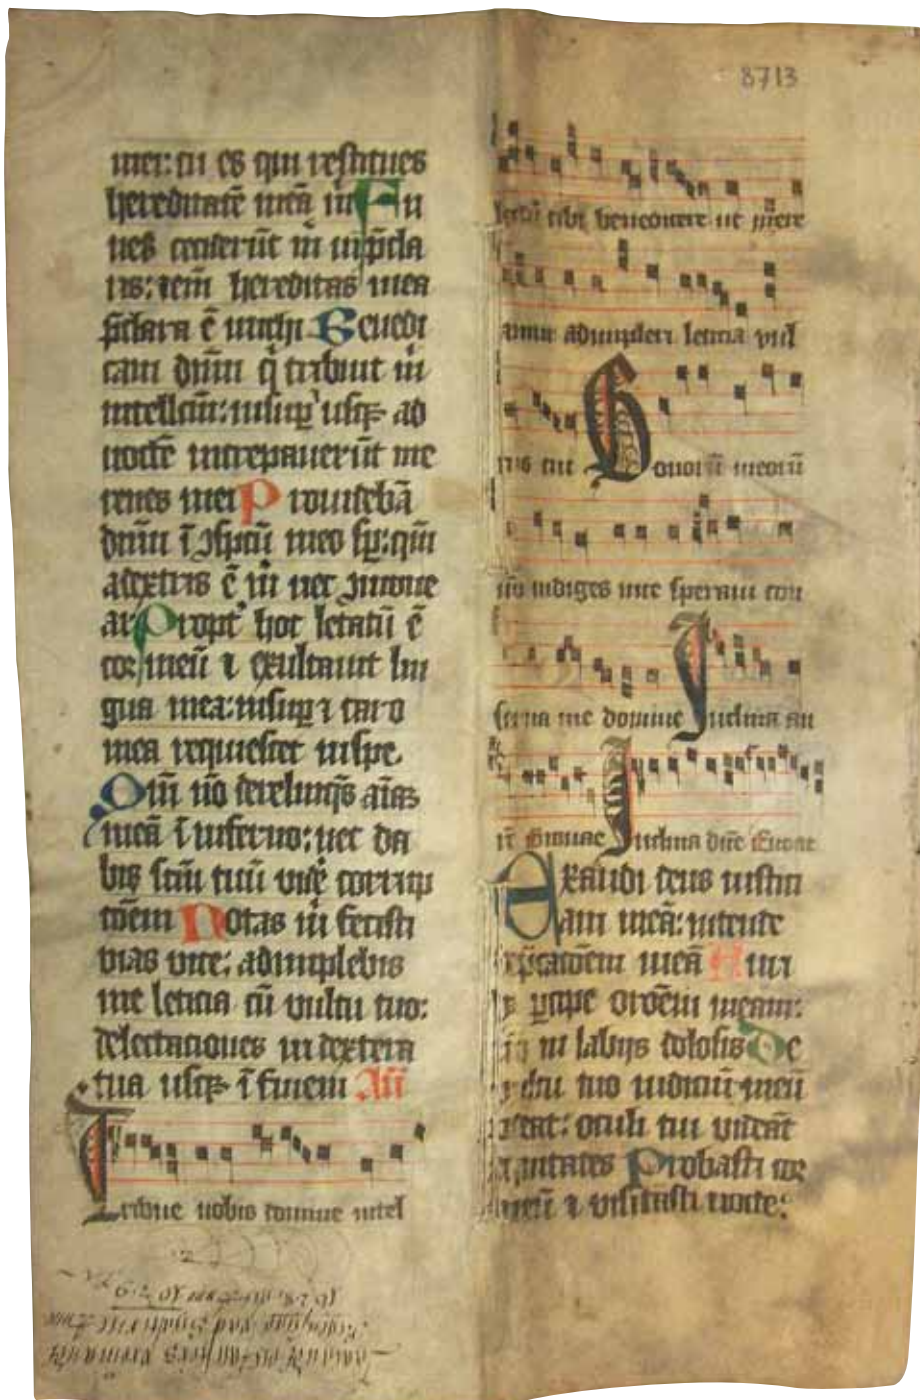 mei: tu es qui restitues
hereditatē meā m̄ Fu
nes ceciderūt m̄ in p̄cla
ris: eteni hereditas mea
p̄clara ē michi Benedi
cam dn̄m q̇ tribuit m̄
intellcm̄: insup̱ usq̱ ad
noctē increpauerūt me
renes mei Prouidebā
dn̄m ī ꝯspcū meo sp̱: qm̄
adextris ē m̄ nec ꝯmoue
ar Propt̓ hoc letatū ē
cor meū ⁊ exultauit lin
gua mea: insup̱ ⁊ caro
mea requiescet inspe
Qm̄ nō derelinq̄s aīaꝫ
meā ī inferno: nec da
bis scm̄ tuū vidē corrup
tōem Notas m̄ fecisti
vias vite: adimplebis
me leticia cū vultu tuo:
delectaciones in dextera
tua usq̱ ī finem An̄
Tribue nobis domine intel
lectū tibi benedicere ut mere
amur adimpleri leticia vul
tus tui Bonorū meorū
nō indiges inte speraui con
serua me domine Inclina au
rē Euouae Inclina dn̄e Euoae
Exaudi deus iustici
am meā: intende
dep̱cacōem meā Auri
p̱cipe orōem meam:
in labijs dolosis De
vultu tuo iudiciū meū
oculi tui videāt
Probasti cor
meū ⁊ visitasti nocte:
8713